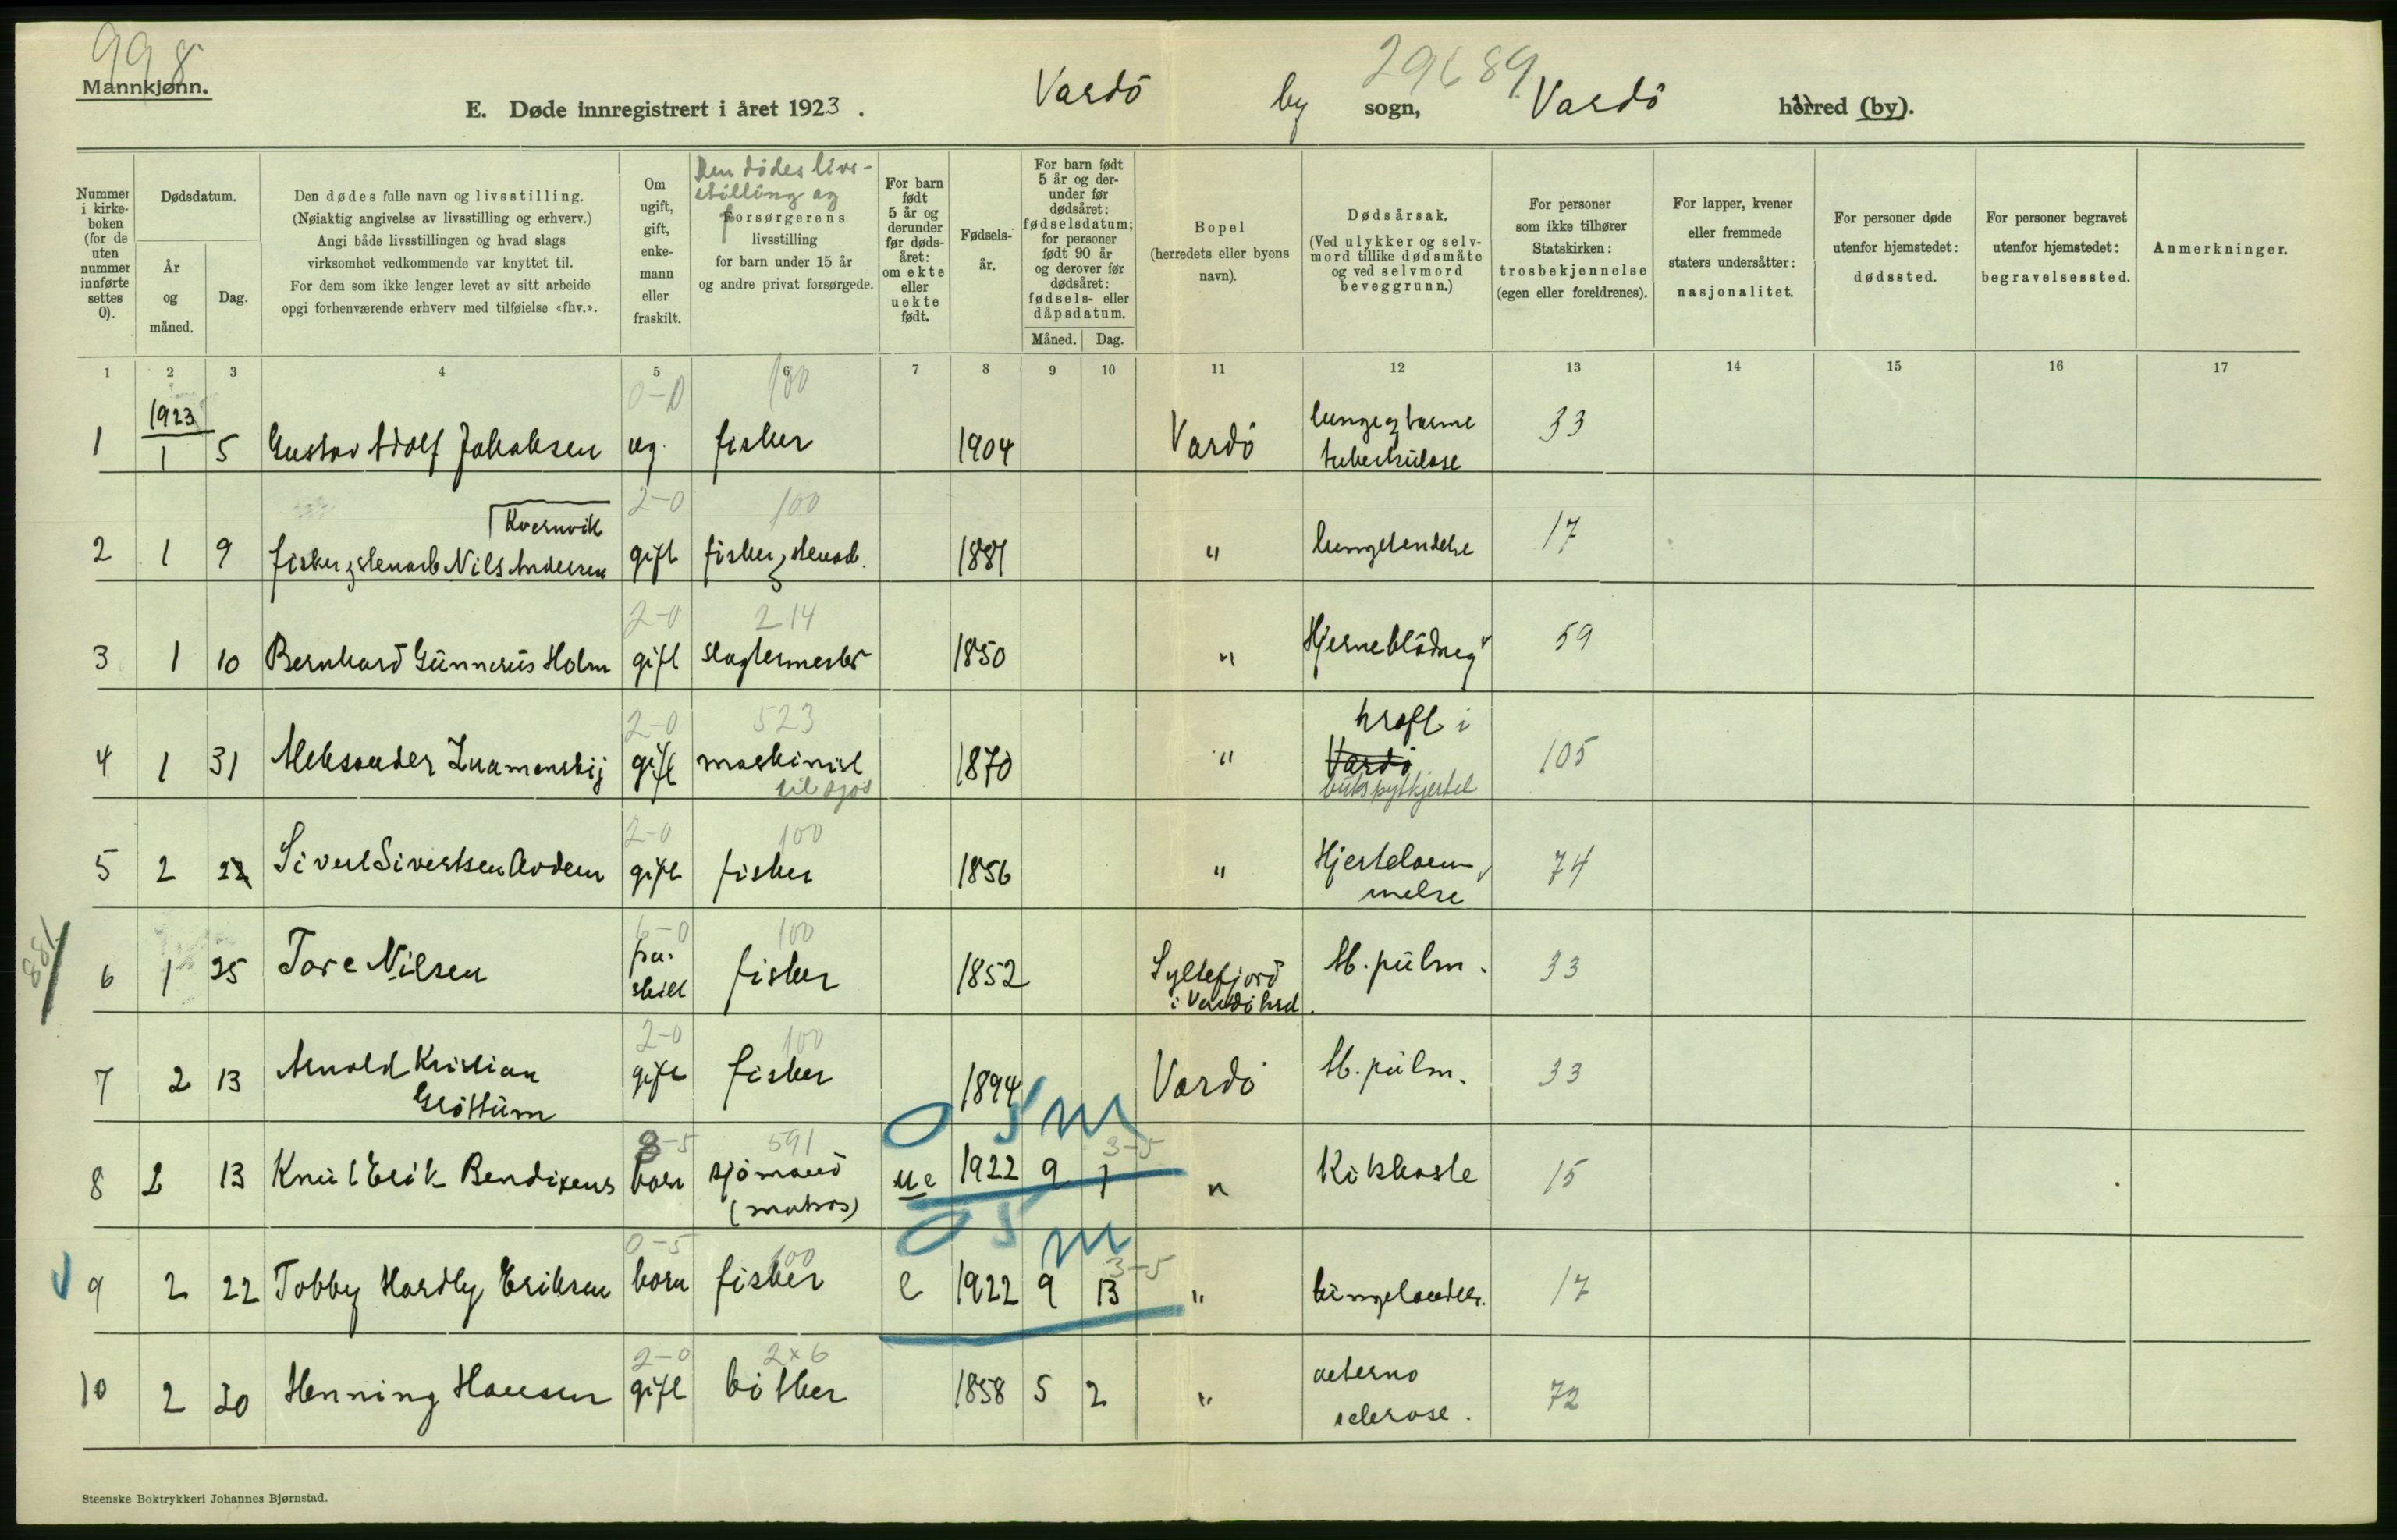 998
29689
Mannkjønn.
E. Døde innregistrert i året 1923.
Vardö by sogn, Vardö herred (by).
Nummer i kirke-boken (for de uten nummer innførte settes 0).
Dødsdatum.
År og måned.
Dag.
Den dødes fulle navn og livsstilling.
(Nøiaktig angivelse av livsstilling og erhverv.)
Angi både livsstillingen og hvad slags
virksomhet vedkommende var knyttet til.
For dem som ikke lenger levet av sitt arbeide
opgi forhenværende erhverv med tilføielse «fhv.».
Om ugift, gift, enke-mann eller fraskilt.
Den dödes livs-
stilling og
Forsørgerens
livsstilling
for barn under 15 år
og andre privat forsørgede.
For barn født 5 år og derunder før døds-året: om ekte eller uekte født.
Fødsels-år.
For barn født 5 år og der-under før dødsåret: fødselsdatum; for personer født 90 år og derover før dødsåret: fødsels- eller dåpsdatum.
Måned. Dag.
Bopel
(herredets eller byens navn).
Dødsårsak.
(Ved ulykker og selv-mord tillike dødsmåte og ved selvmord beveggrunn.)
For personer som ikke tilhører Statskirken: trosbekjennelse (egen eller foreldrenes).
For lapper, kvener eller fremmede staters undersåtter: nasjonalitet.
For personer døde utenfor hjemstedet: dødssted.
For personer begravet utenfor hjemstedet: begravelsessted.
Anmerkninger.
1 2 3 4 5 6 7 8 9 10 11 12 13 14 15 16 17
1923
0-0 100
1 1 5 Gustav Adolf Jakobsen ug. fisker 1904 Vardö lunge og tarme 33
tuberkulose
2-0 100
Kvernvik
2 1 9 fisker og stenarb Nils Andersen gift fisker og stenarb. 1881 " lungebendelse 17
2-0 214
3 1 10 Bernhard Gunnerus Holm gift slagtermester 1850 " Hjerneblödneg 59
2-0 523
4 1 31 Aleksander Znamenskij gift maskinist 1870 " kræft i 105
til sjös Vardö
bukspytkjertel
2-0 100
5 2 22 Sivert Sivertsen gift fisker 1856 " Hjertelam- 74
melse
6-0 100
6 1 25 Tore Nilsen fra- fisker 1852 Syltefjord tb. pulm. 33
skilt i Vardö hrd.
2-0 100
7 2 13 Arnold Kristian gift fisker 1894 Vardö tb. pulm. 33
Gröttum
0 5 m
8-5 591 3-5
8 2 13 Knut Erik Bendixens barn sjömand ue 1922 9 1 " Kikhoste 15
(matros)
0 5 m
0-5 100 3-5
9 2 22 Tobby Hardly Eriksen barn fisker e 1922 9 13 " lungebetendelse 17
2-0 2×6
10 2 20 Henning Hansen gift bötker 1858 5 2 " aeterno 72
sclerose.
Steenske Boktrykkeri Johannes Bjørnstad.